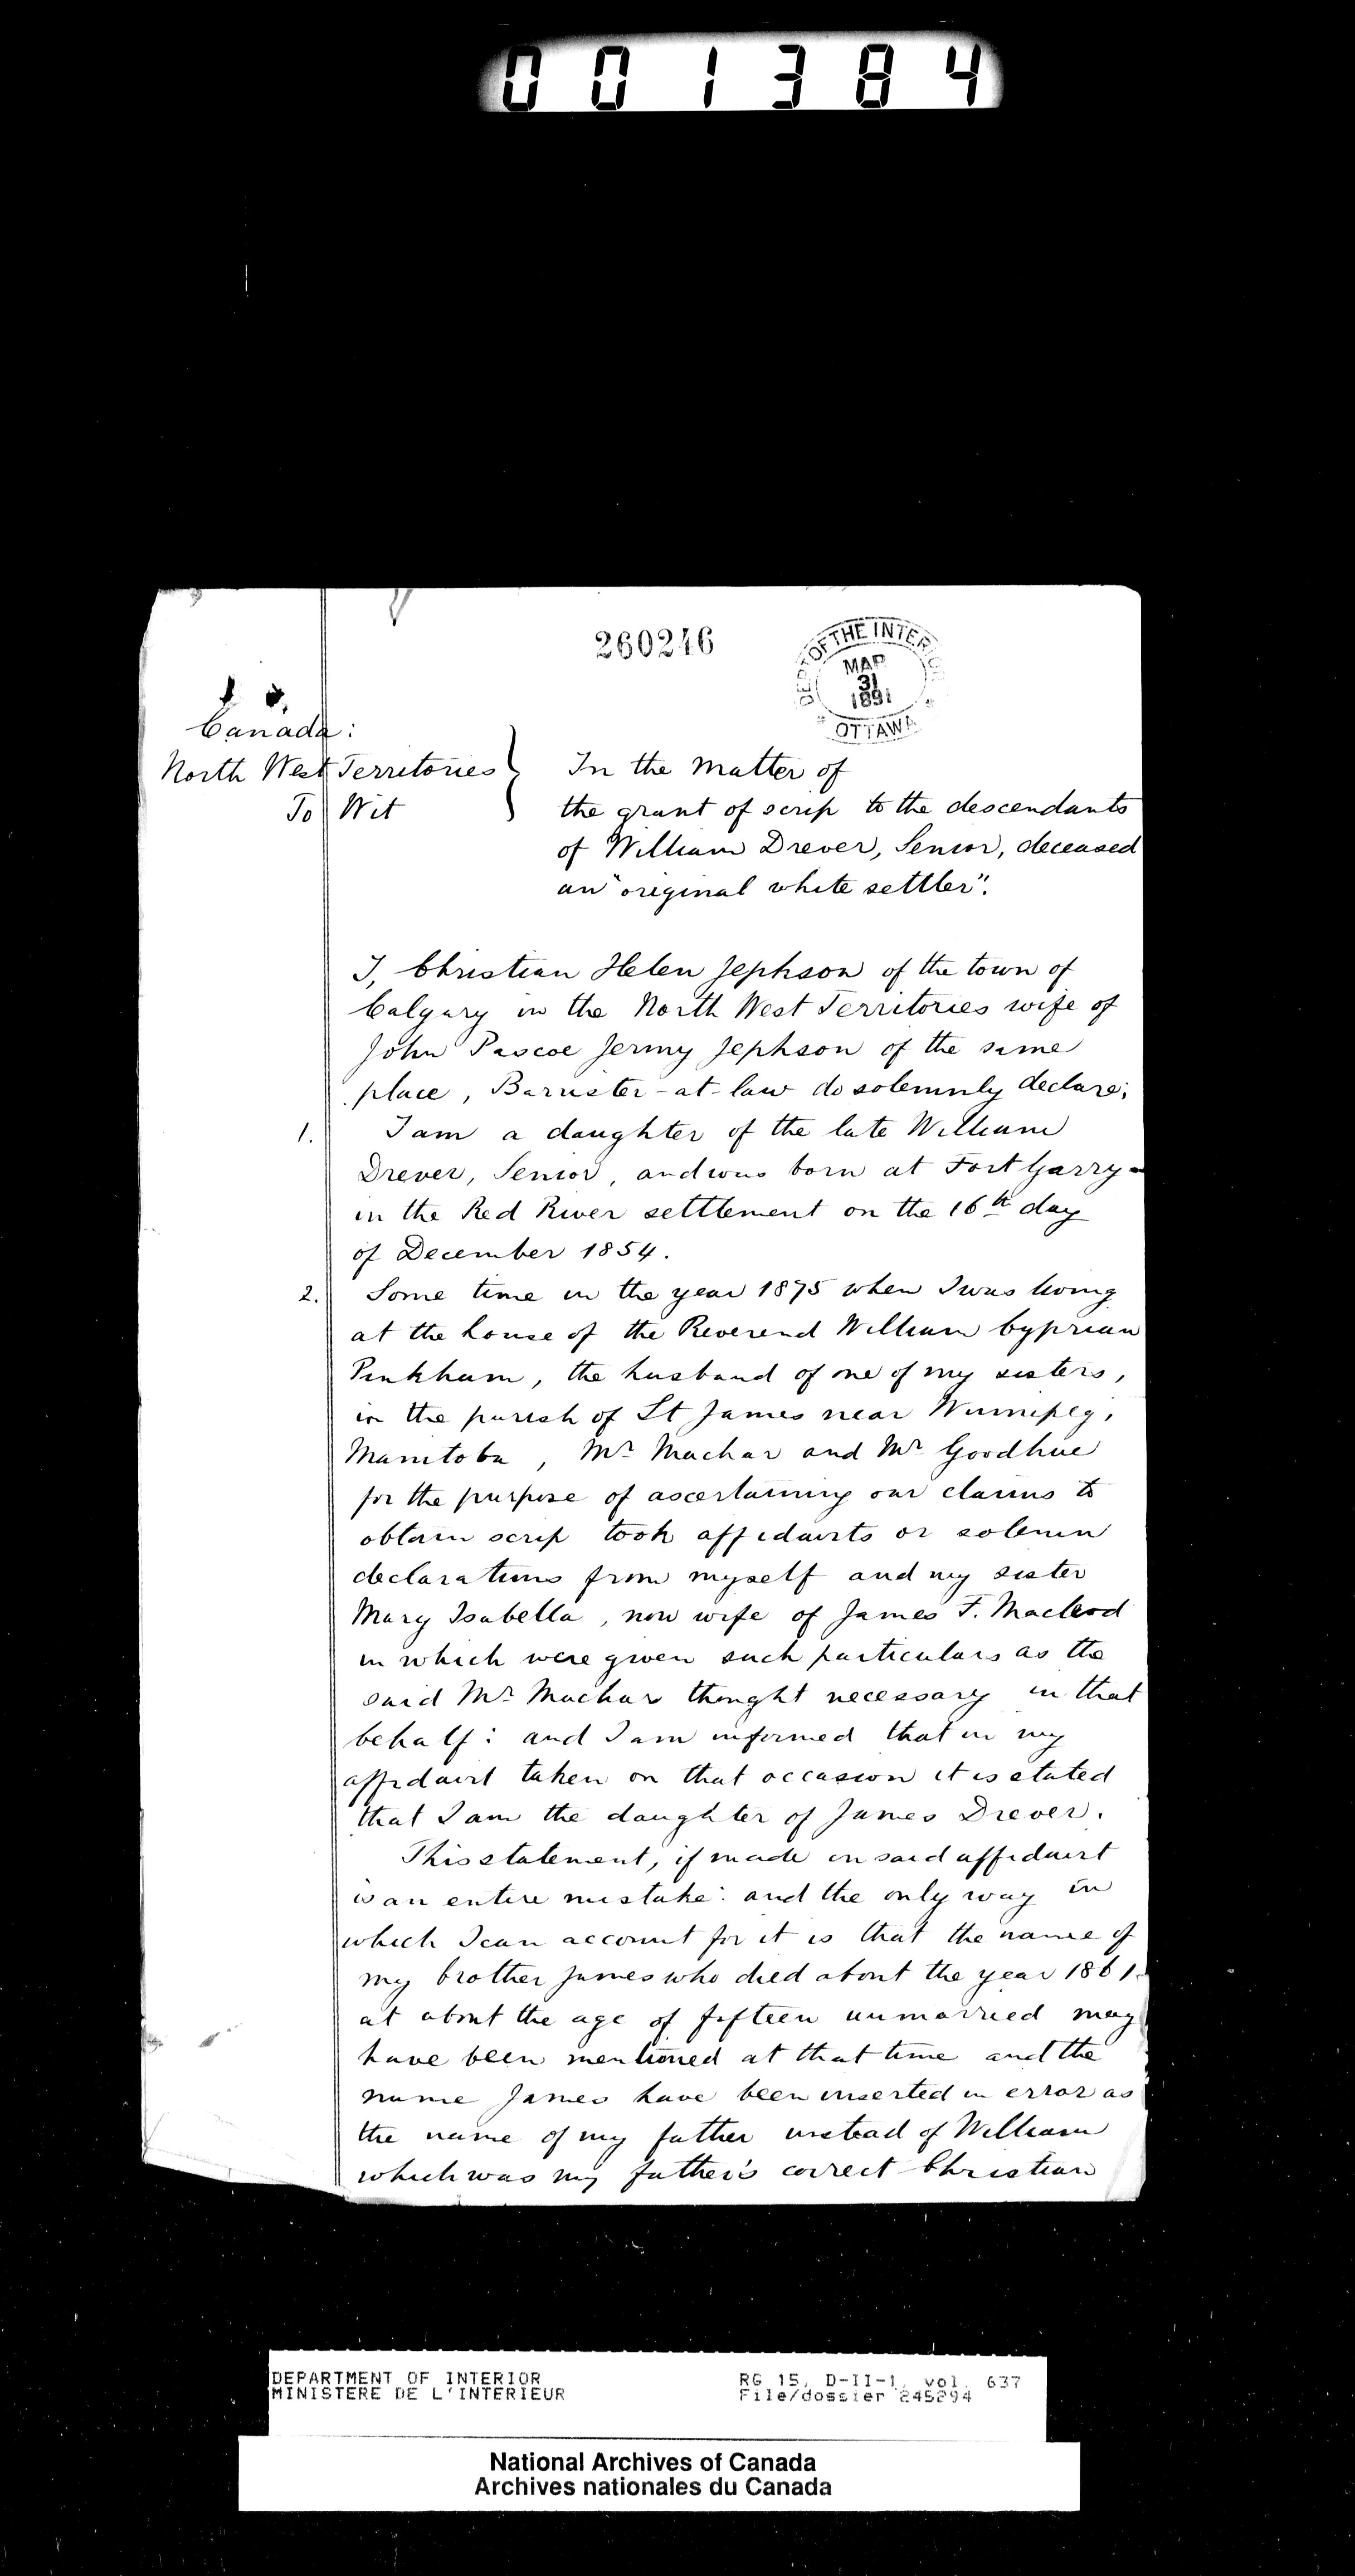 001384
260246
DEPT OF THE INTERIOR
MAR
31
1891
OTTAWA
Canada:
North West Territories } In the matter of
To Wit } the grant of scrip to the descendants
of William Drever, Senior, deceased
an "original white settler".
I, Christian Helen Jephson of the town of
Calgary in the North West Territories wife of
John Pascoe Jermy Jephson of the same
place, Barrister-at-law do solemnly declare;
1. I am a daughter of the late William
Drever, Senior, and was born at Fort Garry
in the Red River settlement on the 16th day
of December 1854.
2. Some time in the year 1875 when I was living
at the house of the Reverend William Cyprian
Pinkham, the husband of one of my sisters,
in the parish of St James near Winnipeg,
Manitoba, Mr Machar and Mr Goodhue
for the purpose of ascertaining our claims to
obtain scrip took affidavits or solemn
declarations from myself and my sister
Mary Isabella, now wife of James F. Macleod
in which were given such particulars as the
said Mr Machar thought necessary in that
behalf: and I am informed that in my
affidavit taken on that occasion it is stated
that I am the daughter of James Drever.
This statement, if made in said affidavit
is an entire mistake: and the only way in
which I can account for it is that the name of
my brother James who died about the year 1861
at about the age of fifteen unmarried may
have been mentioned at that time and the
name James have been inserted in error as
the name of my father instead of William
which was my father's correct Christian
DEPARTMENT OF INTERIOR RG 15, D-II-1, vol. 637
MINISTERE DE L'INTERIEUR File/dossier 245294
National Archives of Canada
Archives nationales du Canada